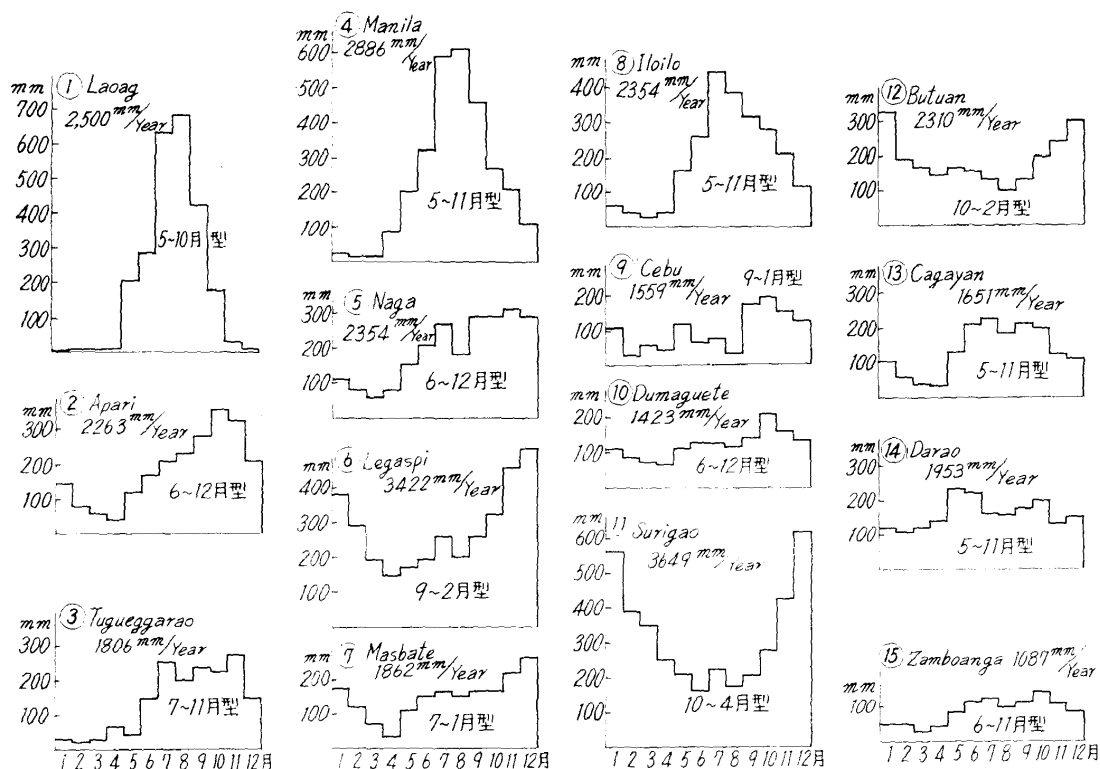 ① Laoag
mm
700
2,500 mm/Year
600
500
400
300
200
100
5~10月型
② Apari
mm
300
2263 mm/Year
200
100
6~12月型
③ Tugueggarao
mm
1806 mm/Year
300
200
100
7~11月型
1 2 3 4 5 6 7 8 9 10 11 12月
④ Manila
mm
2886 mm/Year
600
500
400
300
200
100
5~11月型
⑤ Naga
mm
300
2354 mm/Year
200
100
6~12月型
⑥ Legaspi
mm
3422 mm/Year
400
300
200
100
9~2月型
⑦ Masbate
mm
1862 mm/Year
200
100
7~1月型
1 2 3 4 5 6 7 8 9 10 11 12月
⑧ Iloilo
mm
2354 mm/Year
400
300
200
100
5~11月型
⑨ Cebu
mm
1559 mm/Year
9~1月型
200
100
⑩ Dumaguete
mm
1423 mm/Year
200
100
6~12月型
11 Surigao
mm
600
3649 mm/Year
500
400
300
200
100
10~4月型
1 2 3 4 5 6 7 8 9 10 11 12月
⑫ Butuan
mm
2310 mm/Year
300
200
100
10~2月型
⑬ Cagayan
mm
1651 mm/Year
300
200
100
5~11月型
⑭ Darao
mm
1953 mm/Year
300
200
100
5~11月型
⑮ Zamboanga 1087 mm/Year
mm
100
6~11月型
1 2 3 4 5 6 7 8 9 10 11 12月